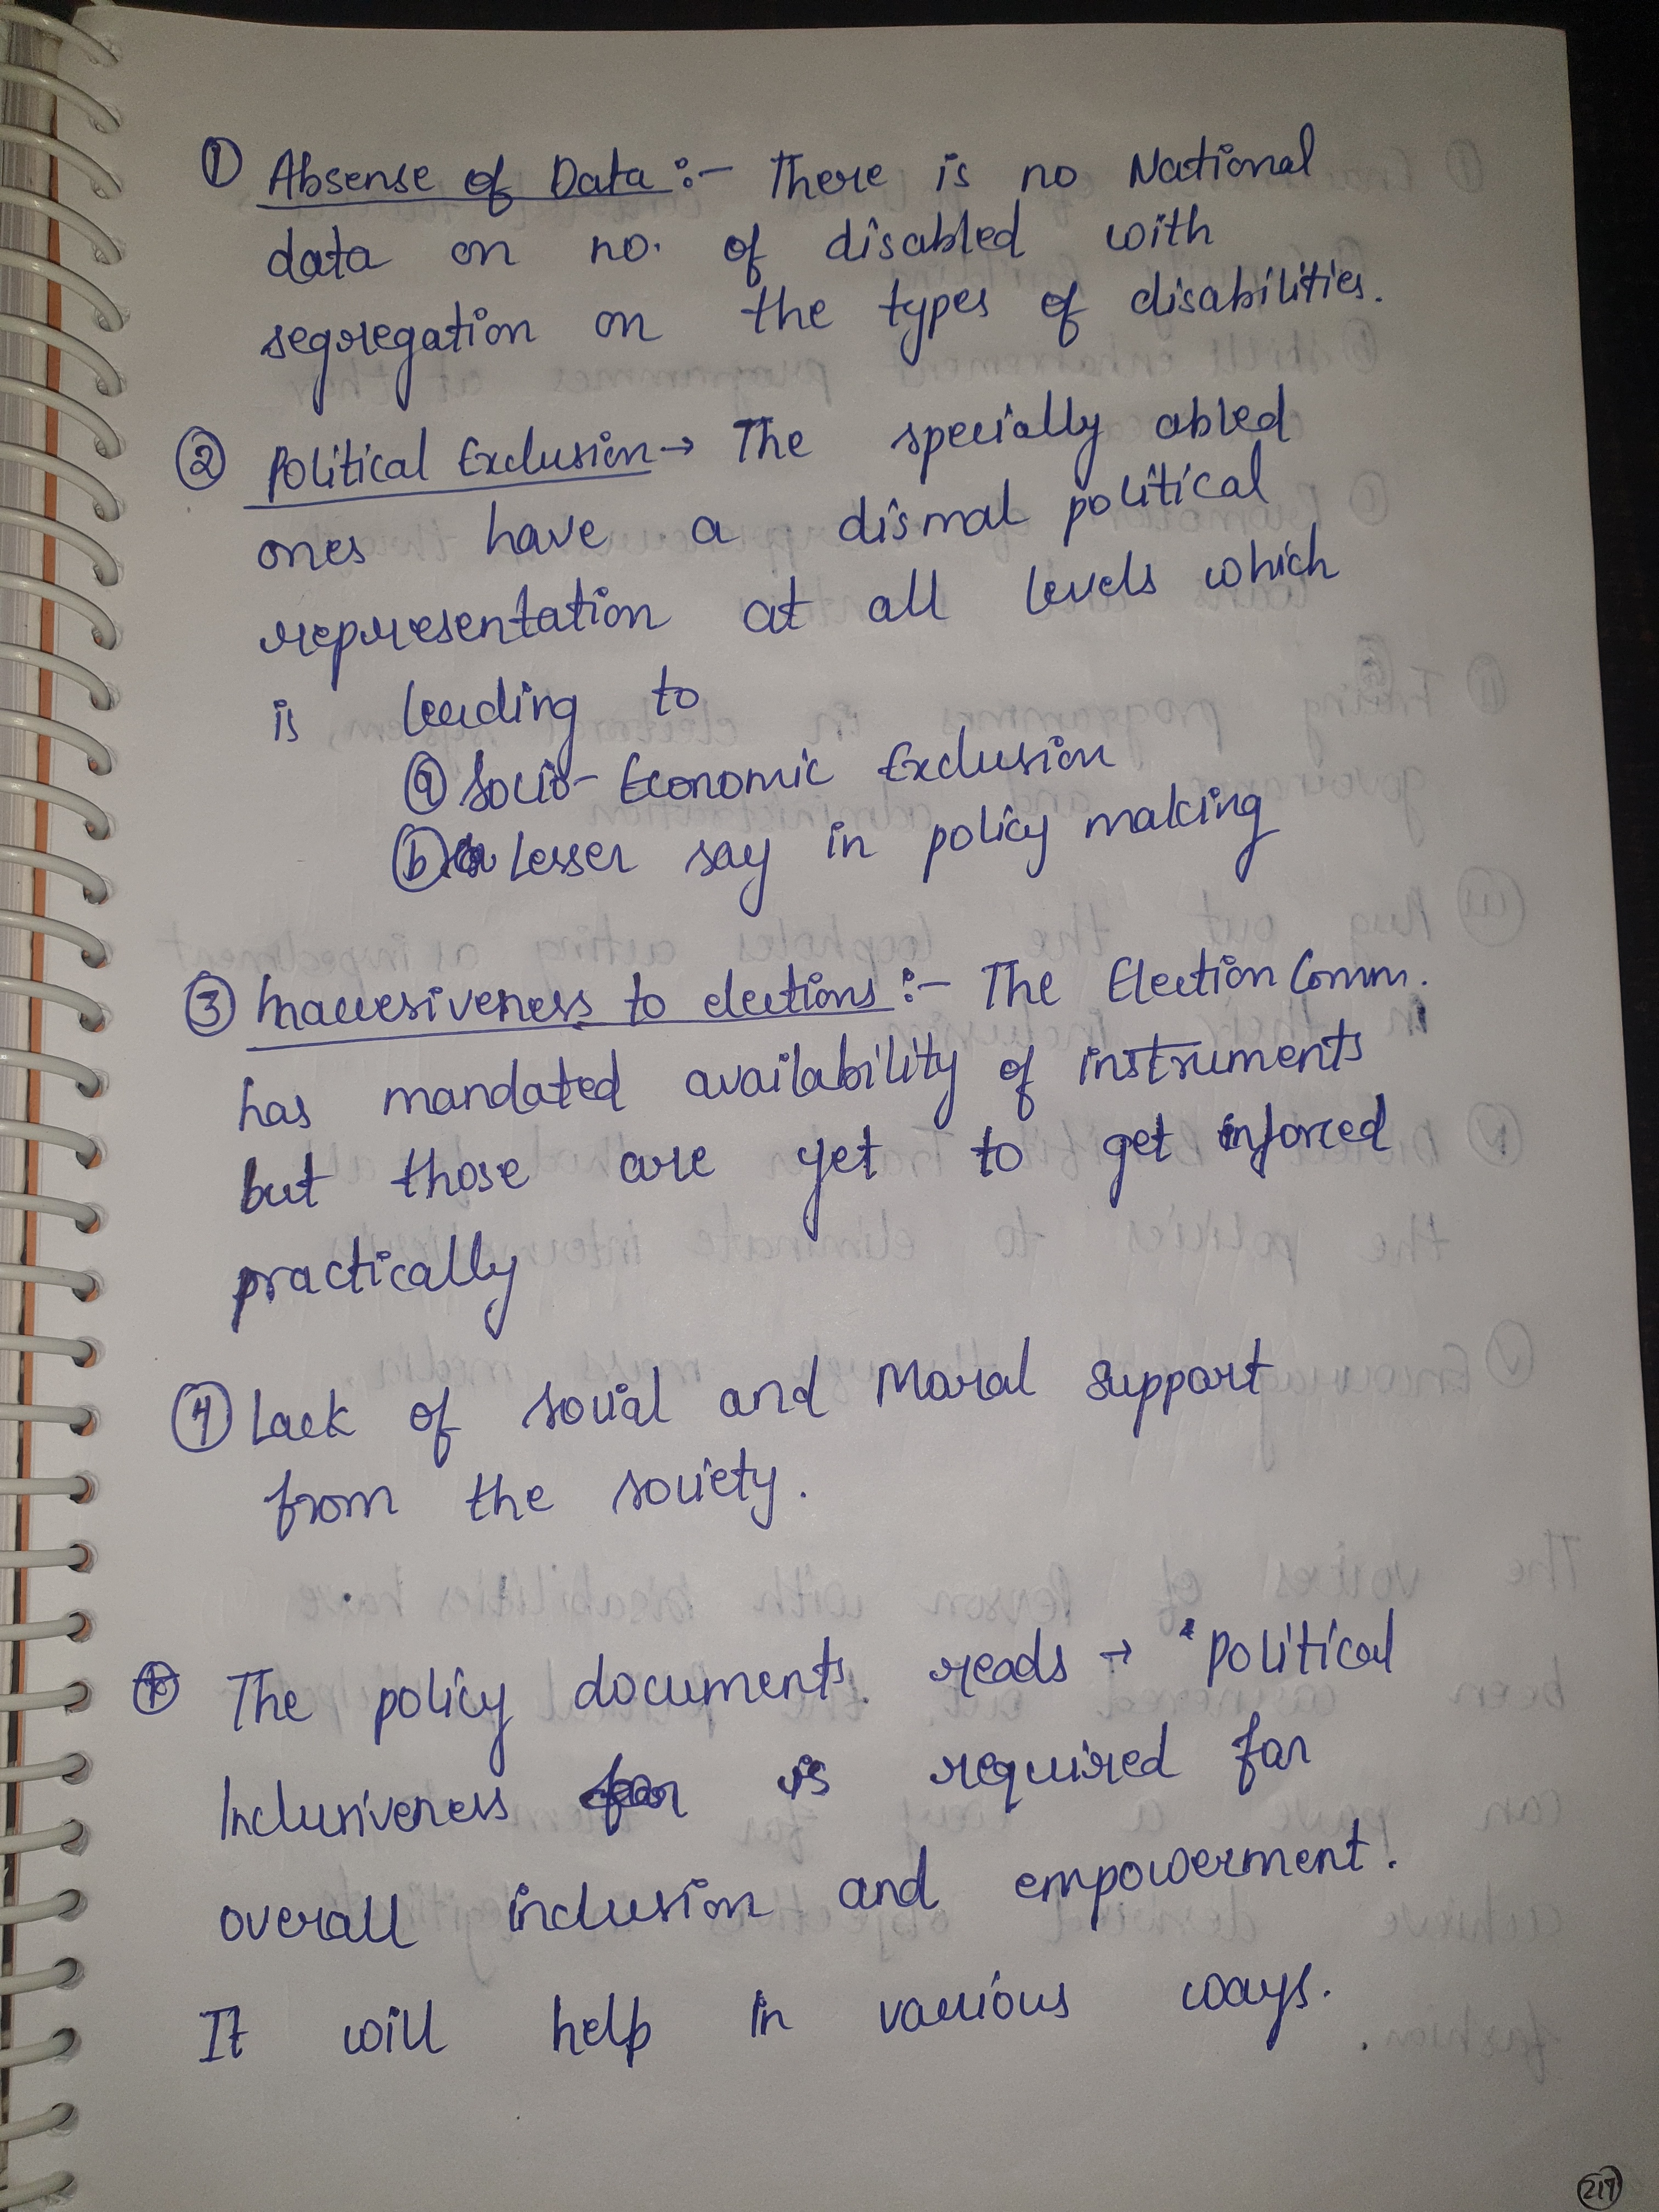 ① Absense of Data :- There is no National
data on no. of disabled with
segregation on the types of disabilities.
② Political Exclusion → The specially abled
ones have a dismal political
representation at all levels which
is leading to
ⓐ Socio-Economic Exclusion
ⓑ Lesser say in policy making
③ Inaccesiveness to elections :- The Election Comm.
has mandated availability of instruments
but those are yet to get inforced
practically
④ Lack of social and Moral support
from the society.
The policy documents reads → "Political
Inclusiveness is required for
overall inclusion and empowerment.
It will help in various ways.
217